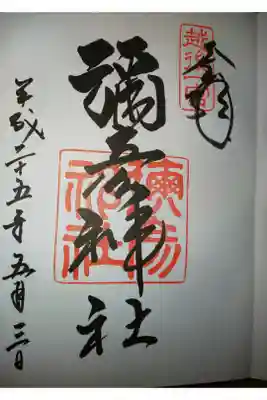 奉拝
越後一宮
彌彦神社
彌彦
神社
平成二十五年五月三日